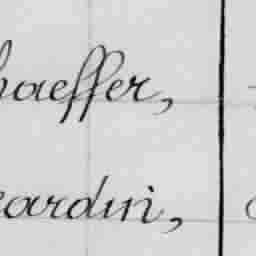 haeffer,
eardin,